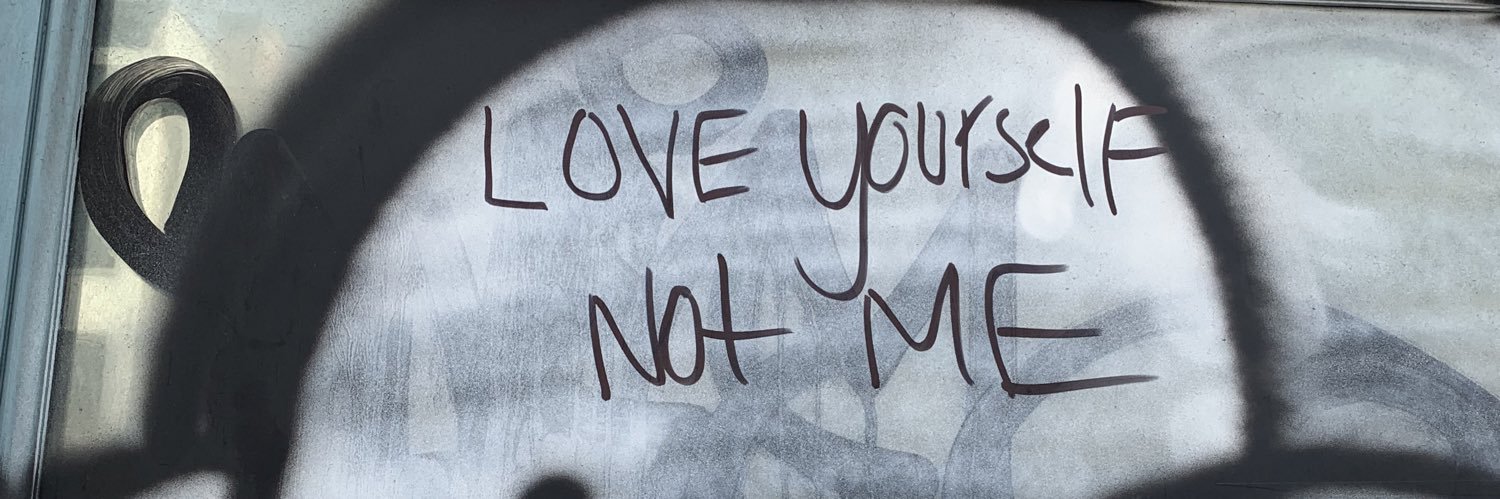 LOVE yourselF
Not ME